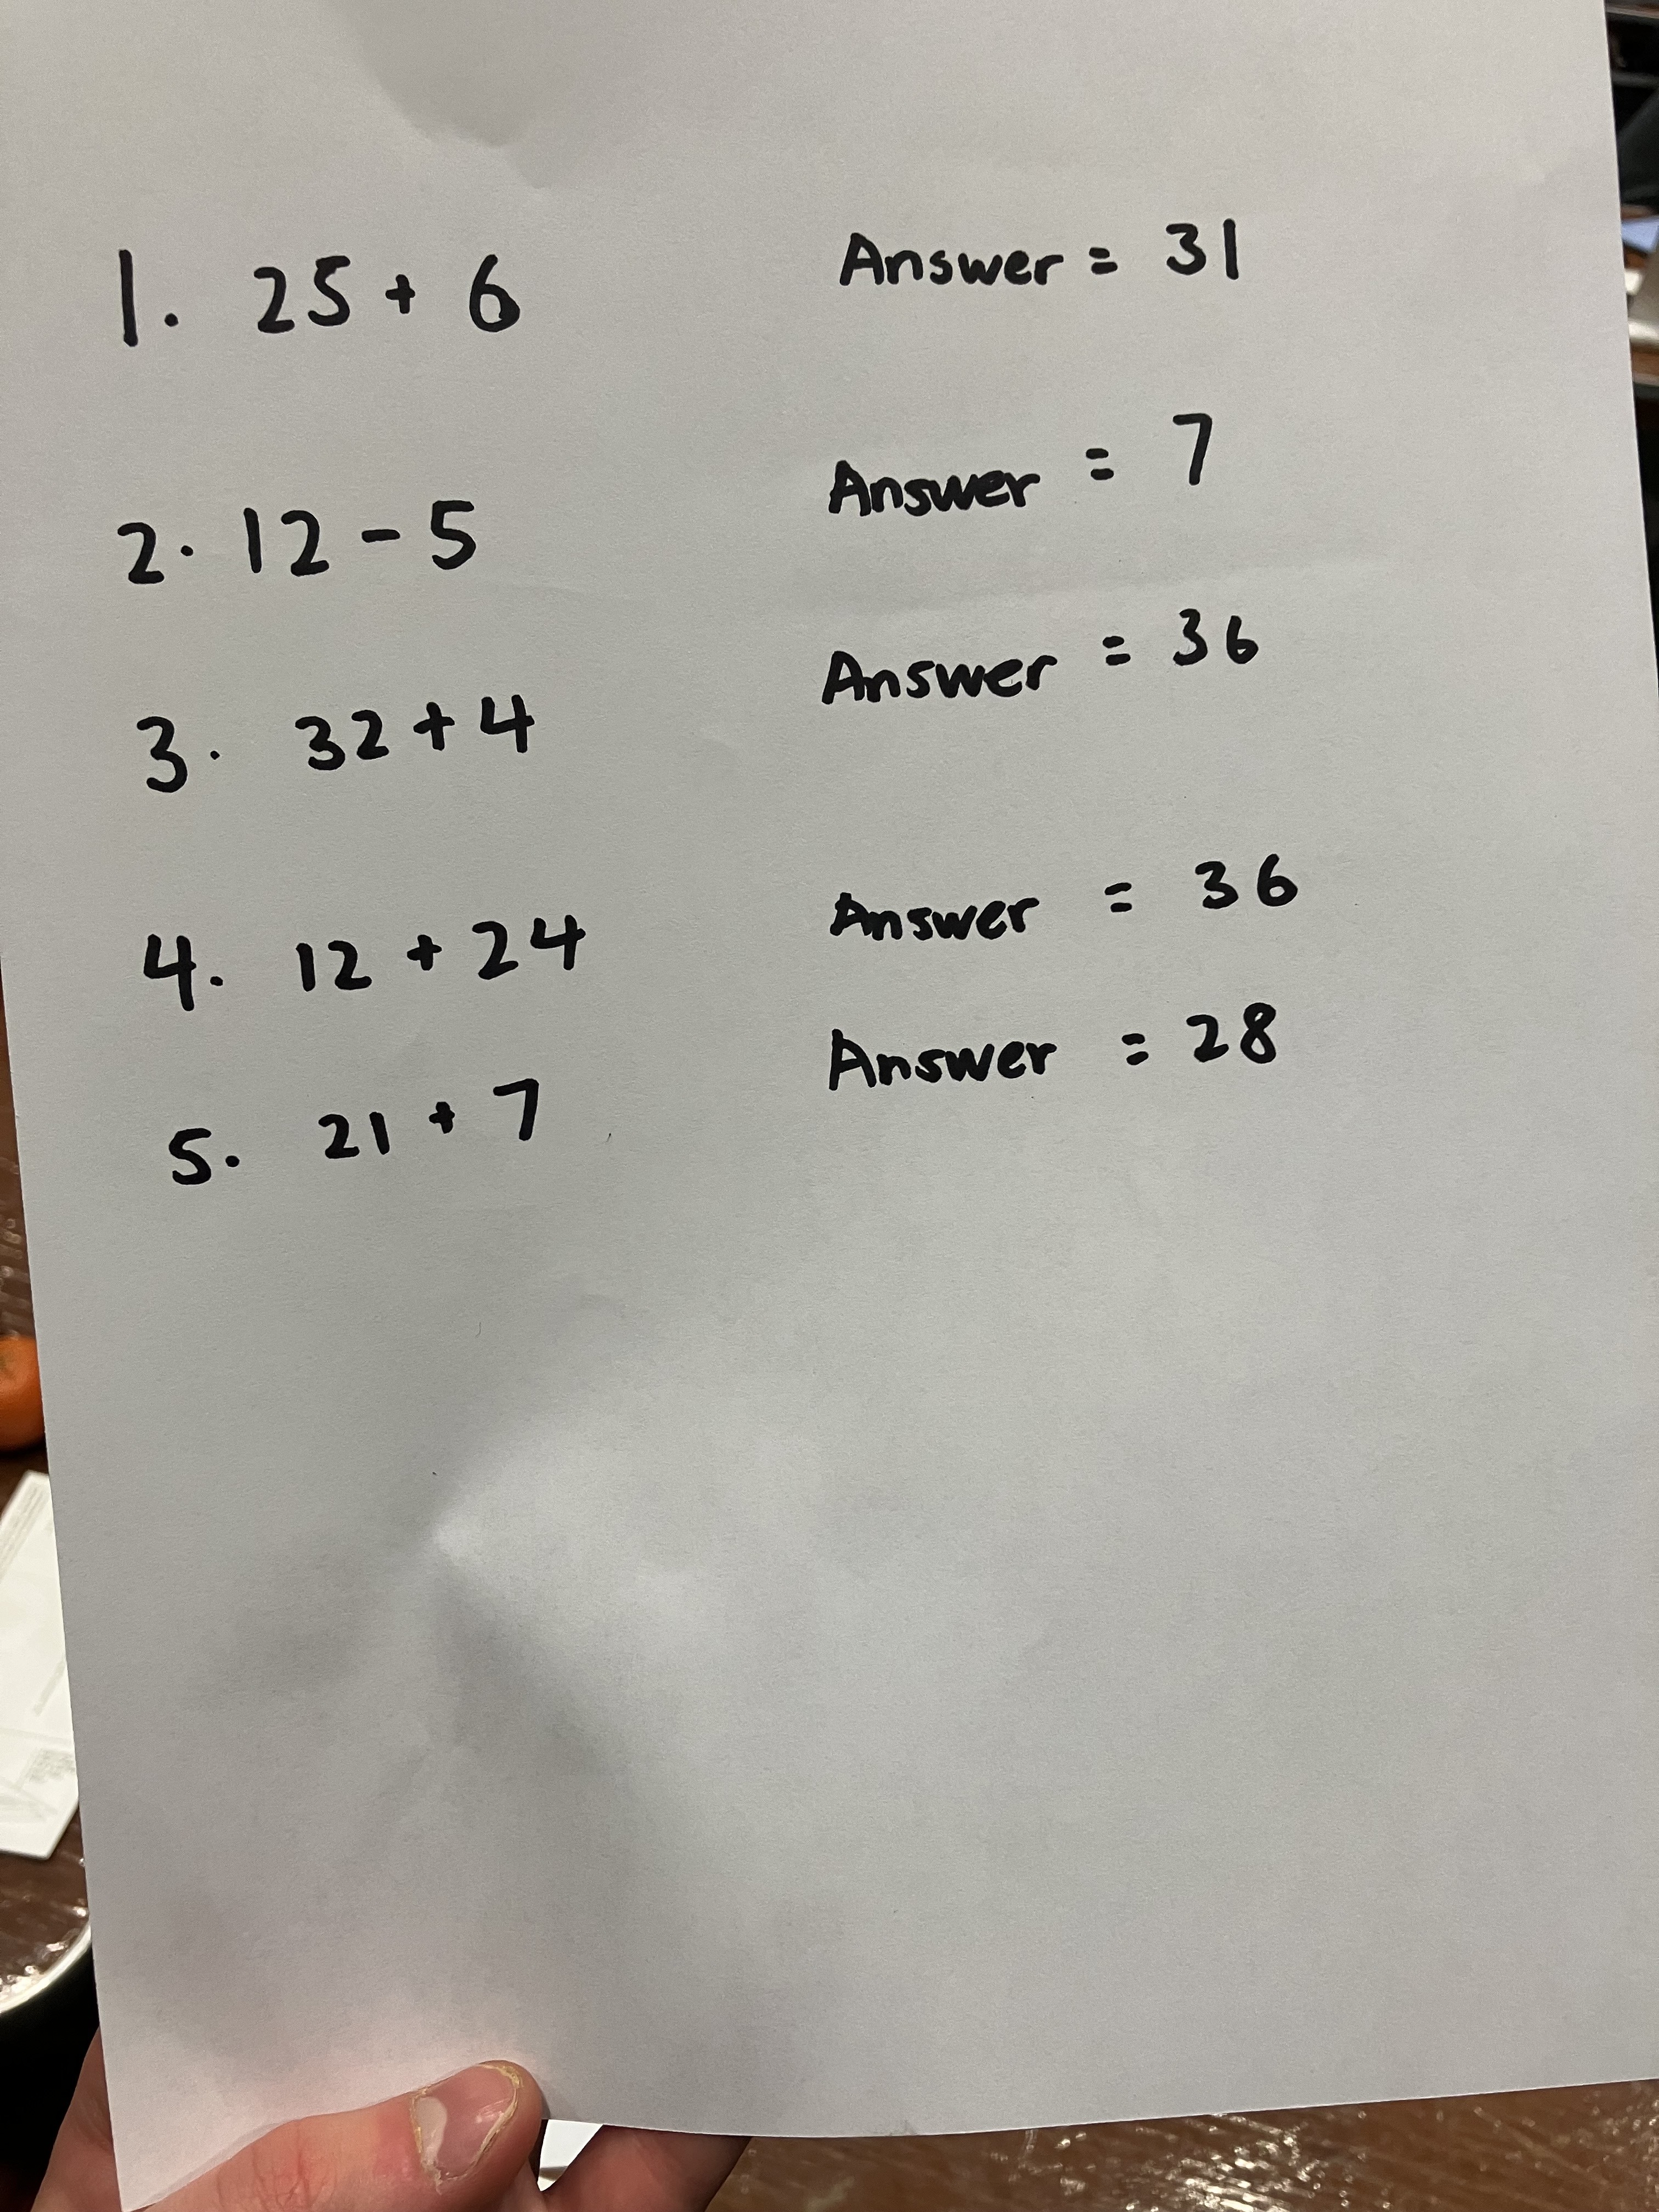 1. 25 + 6 Answer = 31
2. 12 - 5 Answer = 7
3. 32 + 4 Answer = 36
4. 12 + 24 Answer = 36
5. 21 + 7 Answer = 28